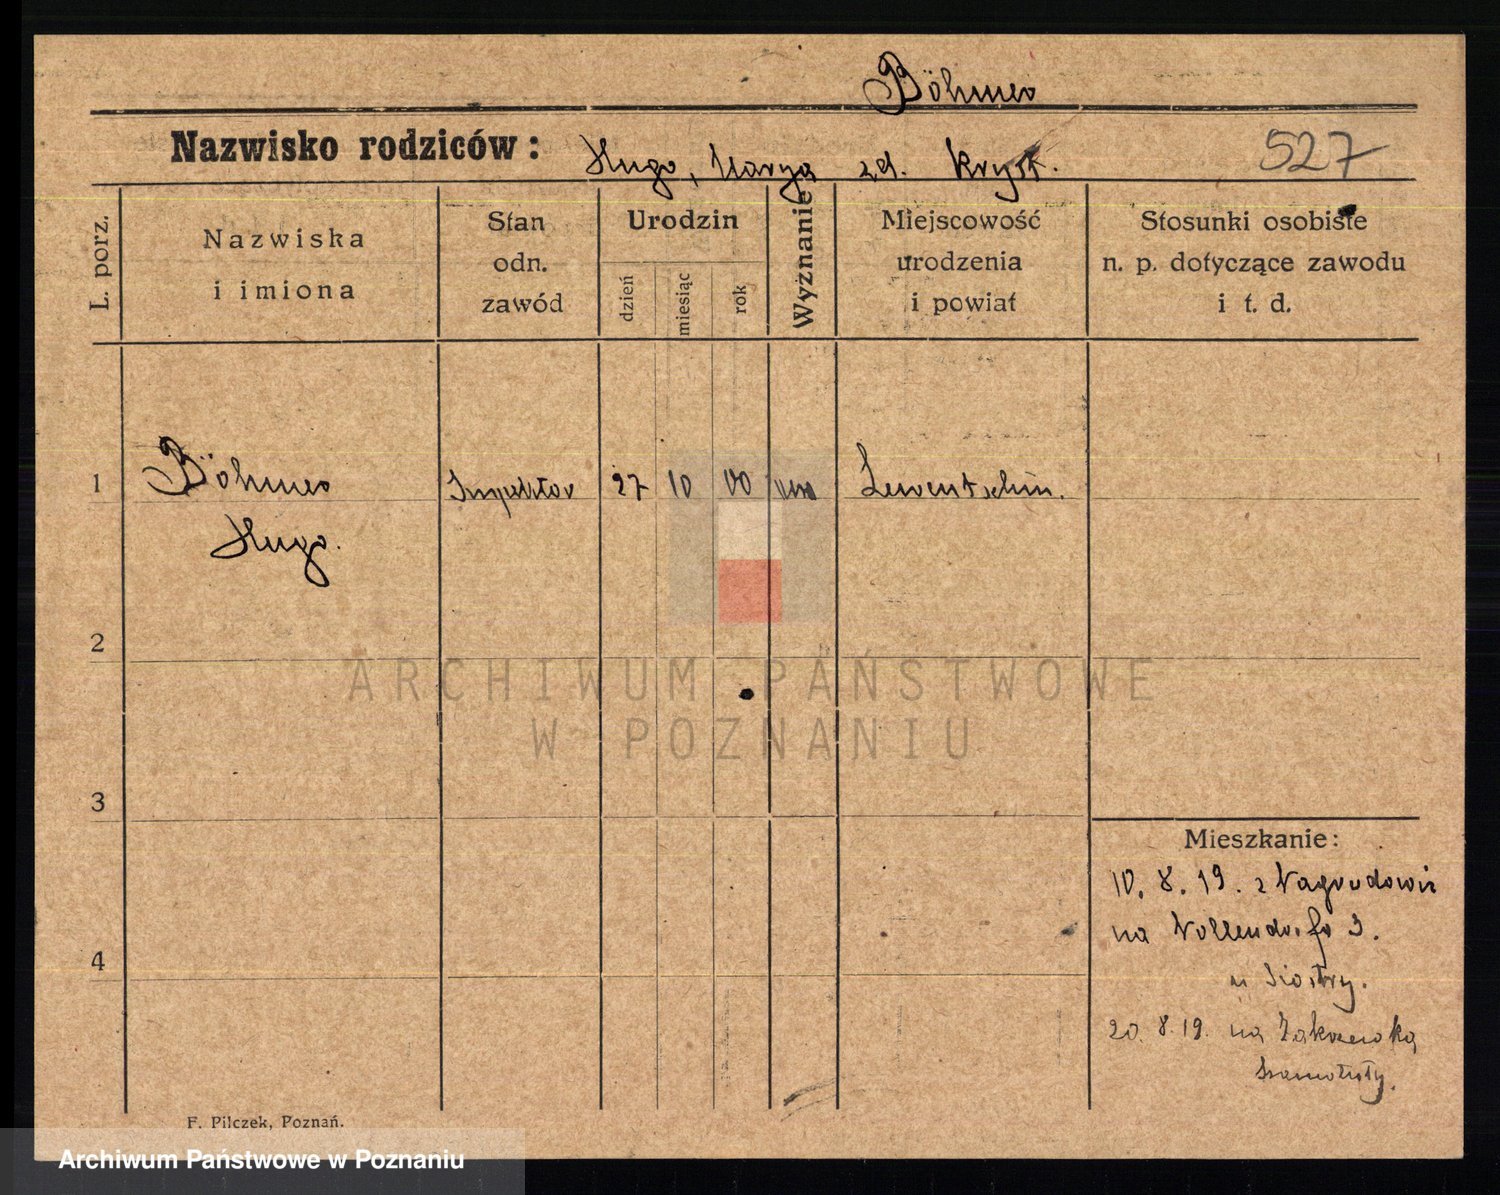 Böhmer
Nazwisko rodziców: Hugo, Marya zd. Kryst.
527
L. porz.
Nazwiska
i imiona
Stan
odn.
zawód
Urodzin
dzień
miesiąc
rok
Wyznanie
Miejscowość
urodzenia
i powiat
Stosunki osobiste
n. p. dotyczące zawodu
i t. d.
1
Böhmer
Hugo.
Inspektor
27
10
00
Lewentschin.
2
3
4
Mieszkanie:
10. 8. 19. z
na 3.
u Siostry.
20. 8. 19. na
Szamotuły.
F. Pilczek, Poznań.
ARCHIWUM PAŃSTWOWE
W POZNANIU
Archiwum Państwowe w Poznaniu